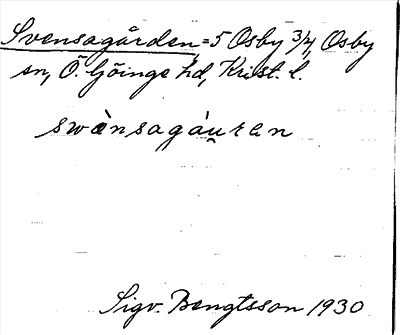 Svensagården = 5 Osby 3/4, Osby
sn, Ö. Göinge hd, Krist. l.
swènsagáu̯ren
Sigv. Bengtsson 1930